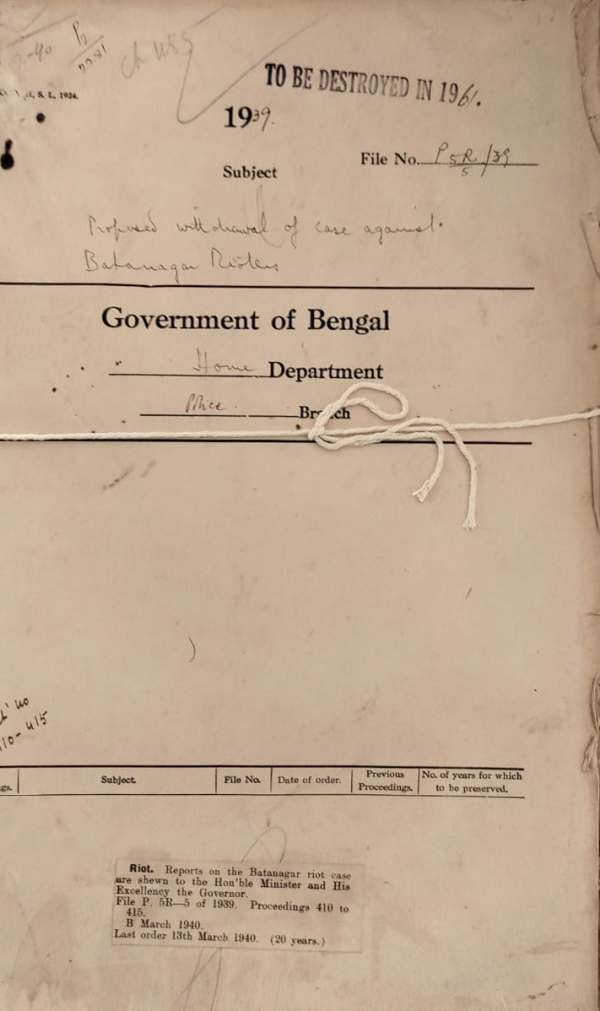 TO BE DESTROYED IN 1961.
1939.
File No. P 5R/5 /39
Subject
Proposed withdrawal of case against
Batanagar Rioters
Government of Bengal
Home Department
Police Branch
410-415
Subject.
File No.
Date of order.
Previous Proceedings.
No. of years for which to be preserved.
Riot. Reports on the Batanagar riot case
are shewn to the Hon'ble Minister and His
Excellency the Governor.
File P. 5R—5 of 1939. Proceedings 410 to
415.
B March 1940.
Last order 13th March 1940. (20 years.)